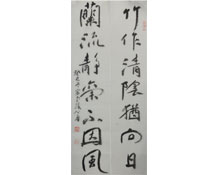 竹作清陰猶向日
蘭流静氣不因風